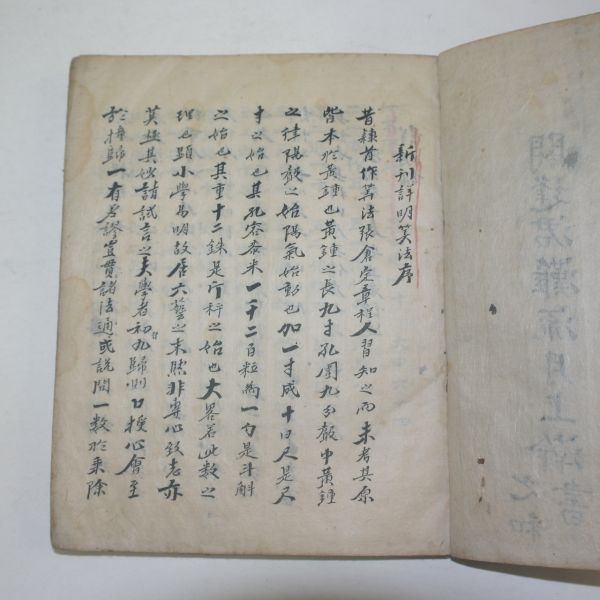 新刊詳明筭法序
昔隸首作筭法張倉定章程人習知之而未考其原
皆本於黃鍾也黃鍾之長九寸孔圍九分聲中黃鍾
之律陽聲之始陽氣始動也加一寸成十曰尺是尺
寸之始也其孔容黍米一千二百粒爲一勺是斗斛
之始也其重十二銖是斤秤之始也大畧若此數之
理也顯小學易明故居六藝之末然非專心致志亦
莫極其妙請試言之夫學者初九歸則口授心會至
於撞歸一有差謬豈貫諸法通或設問一數於乘除